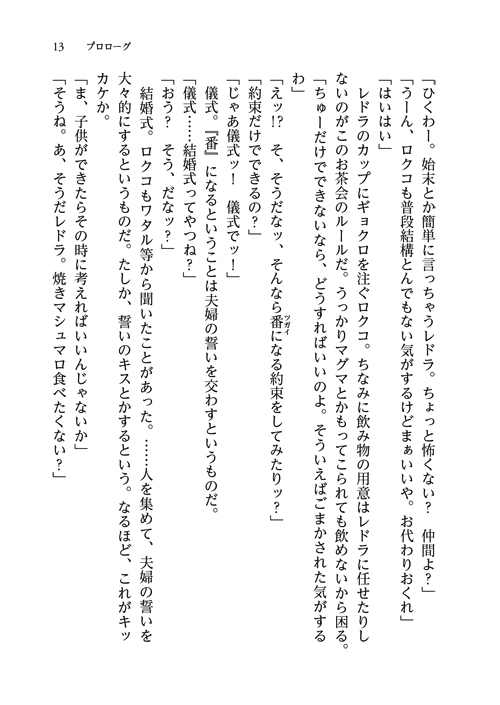 13　プロローグ
「ひくわー。始末とか簡単に言っちゃうレドラ。ちょっと怖くない？　仲間よ？」
「うーん、ロクコも普段結構とんでもない気がするけどまぁいいや。お代わりおくれ」
「はいはい」
　レドラのカップにギョクロを注ぐロクコ。ちなみに飲み物の用意はレドラに任せたりし
ないのがこのお茶会のルールだ。うっかりマグマとかもってこられても飲めないから困る。
「ちゅーだけでできないなら、どうすればいいのよ。そういえばごまかされた気がする
わ」
「えッ!?　そ、そうだなッ、そんなら番ツガイになる約束をしてみたりッ？」
「約束だけでできるの？」
「じゃあ儀式ッ！　儀式でッ！」
　儀式。『番』になるということは夫婦の誓いを交わすというものだ。
「儀式……結婚式ってやつね？」
「おう？　そう、だなッ？」
　結婚式。ロクコもワタル等から聞いたことがあった。……人を集めて、夫婦の誓いを
大々的にするというものだ。たしか、誓いのキスとかするという。なるほど、これがキッ
カケか。
「ま、子供ができたらその時に考えればいいんじゃないか」
「そうね。あ、そうだレドラ。焼きマシュマロ食べたくない？」